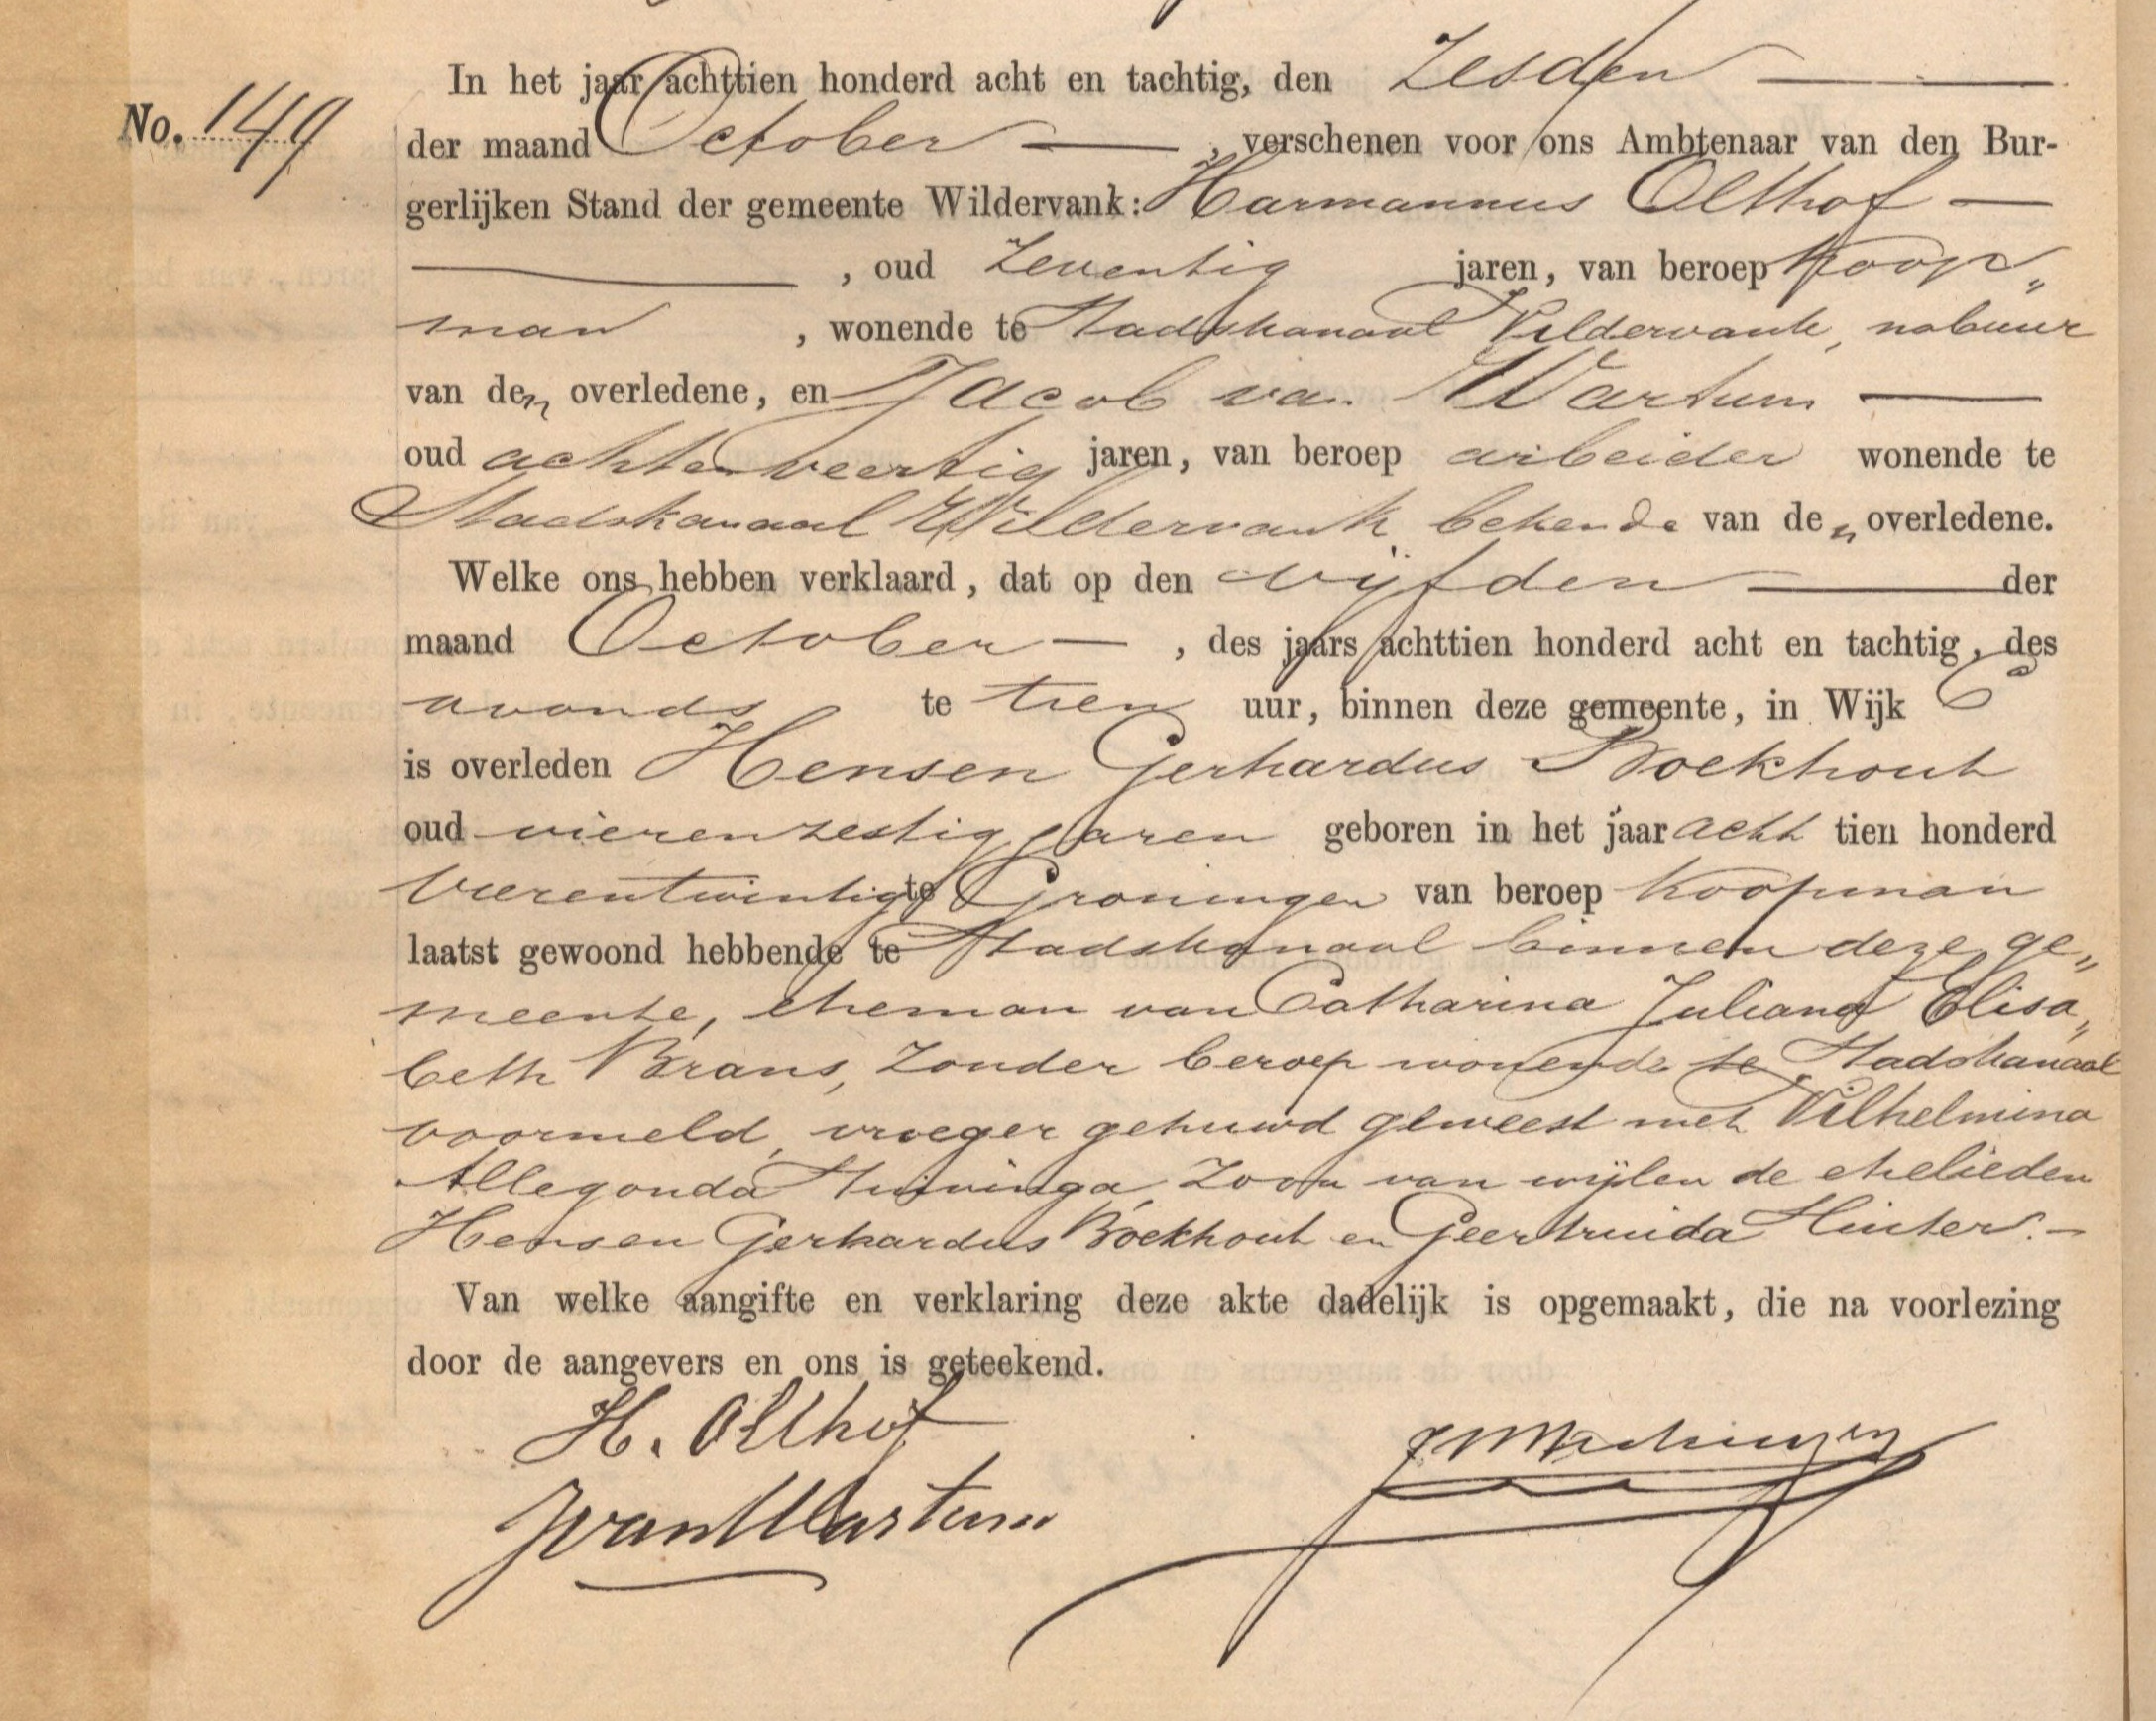 In het jaar achttien honderd acht en tachtig, den zesden
No. 149
der maand October, verschenen voor ons Ambtenaar van den Bur-
gerlijken Stand der gemeente Wildervank: Harmannus Olthof
, oud zeventig jaren, van beroep koop„
man, wonende te Stadskanaal Wildervank, nabuur
van den overledene, en Jacob van Wartum
oud achtenveertig jaren, van beroep arbeider wonende te
Stadskanaal Wildervank bekende van den overledene.
Welke ons hebben verklaard, dat op den vijfden der
maand October, des jaars achttien honderd acht en tachtig, des
avonds te tien uur, binnen deze gemeente, in Wijk C
is overleden Hensen Gerhardus Boekhout
oud vierenzestig jaren geboren in het jaar acht tien honderd
vierentwintig te Groningen van beroep koopman
laatst gewoond hebbende te Stadskanaal binnen deze ge„
meente, eheman van Catharina Juliana Elisa„
beth Brans, zonder beroep wonende te Stadskanaal
voormeld, vroeger gehuwd geweest met Wilhelmina
Allegonda Huivinga, zoon van wijlen de ehelieden
Hensen Gerhardus Boekhout en Geertruida Hinter.
Van welke aangifte en verklaring deze akte dadelijk is opgemaakt, die na voorlezing
door de aangevers en ons is geteekend.
H. Olthof
J van Wartum